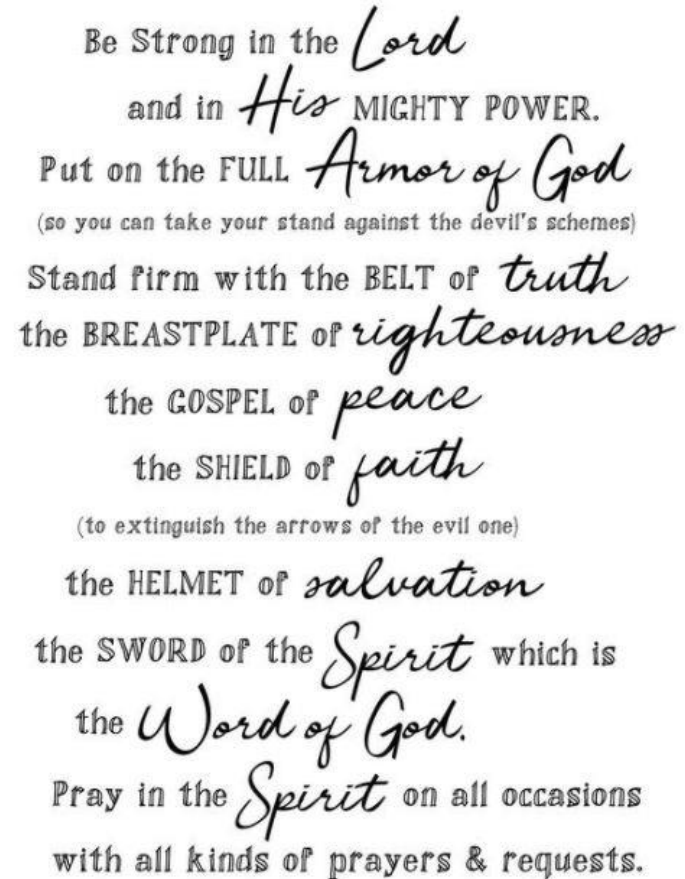 Be Strong in the Lord
and in His MIGHTY POWER.
Put on the FULL Armor of God
(so you can take your stand against the devil's schemes)
Stand firm with the BELT of truth
the BREASTPLATE of righteousness
the GOSPEL of peace
the SHIELD of faith
(to extinguish the arrows of the evil one)
the HELMET of salvation
the SWORD of the Spirit which is
the Word of God.
Pray in the Spirit on all occasions
with all kinds of prayers & requests.